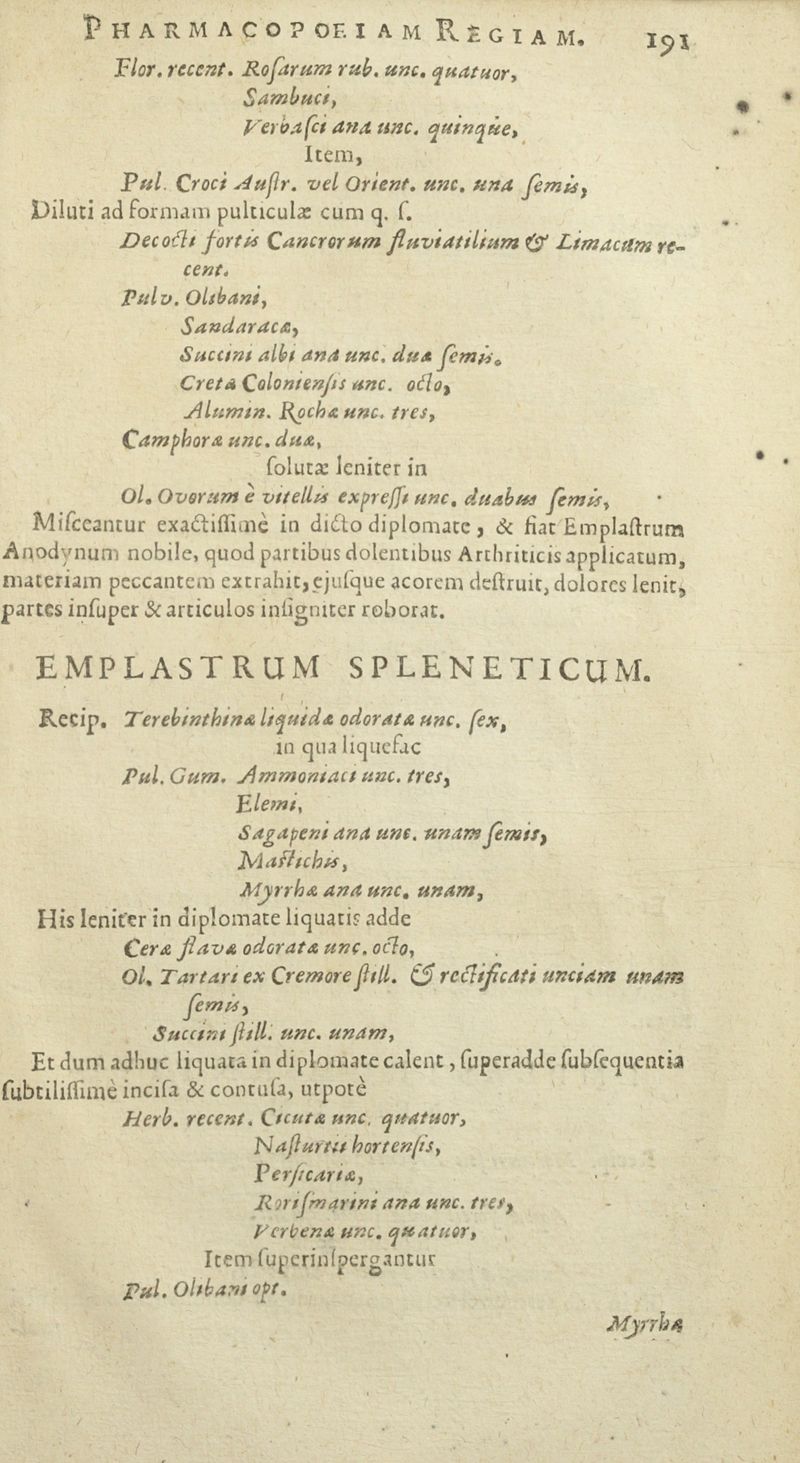 PHARMACOPOEIAM REGIAM. 191
Flor. recent. Roſarum rub. unc. quatuor,
Sambuci,
Verbaſci ana unc. quinque,
Item,
Pul. Croci Auſtr. vel Orient. unc. una ſemis,
Diluti ad formam pulticulæ cum q. ſ.
Decocti fortis Cancrorum fluviatilium & Limacum re-
cent.
Pulv. Olibani,
Sandaracæ,
Succini albi ana unc. duæ ſemis.
Cretæ Colonienſis unc. octo,
Alumin. Rochæ unc. tres,
Camphoræ unc. duæ,
ſolutæ leniter in
Ol. Ovorum è vitellis expreſſi unc. duabus ſemis,
Miſceantur exactiſſimè in dicto diplomate, & fiat Emplaſtrum
Anodynum nobile, quod partibus dolentibus Arthriticis applicatum,
materiam peccantem extrahit, ejuſque acorem deſtruit, dolores lenit,
partes inſuper & articulos inſigniter roborat.
EMPLASTRUM SPLENETICUM.
Recip. Terebinthinæ liquidæ odoratæ unc. ſex,
in qua liquefac
Pul. Gum. Ammoniaci unc. tres,
Elemi,
Sagapeni ana unc. unam ſemis,
Maſtichis,
Myrrhæ ana unc. unam,
His leniter in diplomate liquatis adde
Ceræ flavæ odoratæ unc. octo,
Ol. Tartari ex Cremore ſtill. & rectificati unciam unam
ſemis,
Succini ſtill. unc. unam,
Et dum adhuc liquata in diplomate calent, ſuperadde ſubſequentia
ſubtiliſſimè inciſa & contuſa, utpotè
Herb. recent. Cicutæ unc. quatuor,
Naſturtii hortenſis,
Perſicariæ,
Roriſmarini ana unc. tres,
Verbenæ unc. quatuor,
Item ſuperinſpergantur
Pul. Olibani opt.
Myrrhæ